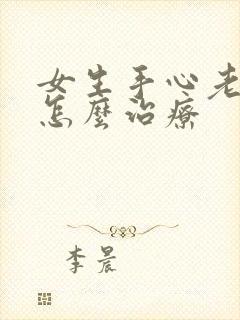 女生手心老
怎麼治療
李晨